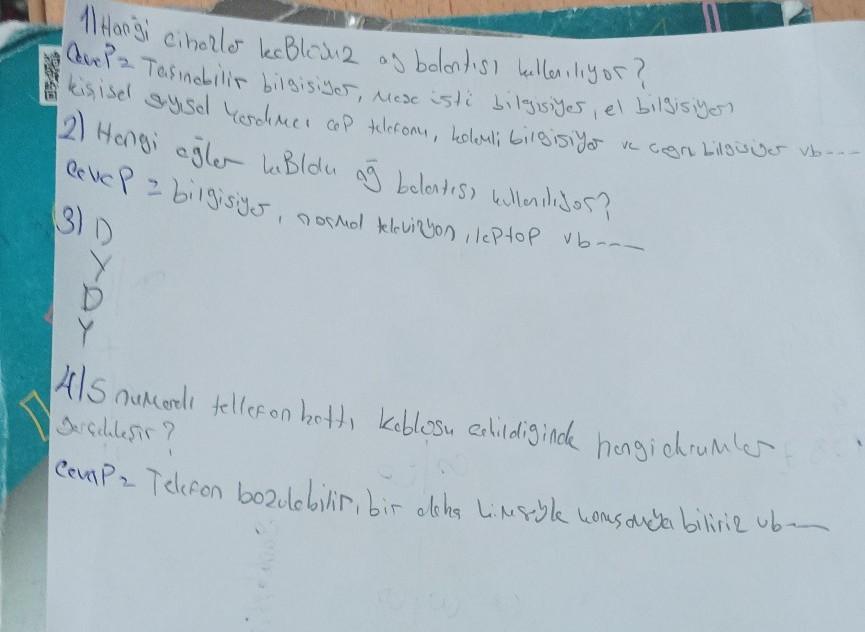 1) Hangi cihazlar kaBlosuz ağ bolantısı kullanılıyor?
CevaP= Taşınabilir bilgisiyar, Masa üstü bilgisiyar, el bilgisiyarı
kişisel sayısal Yardımcı ceP telefonu, kolemli bilgisiyar ve bilgisiyar vb----
2) Hangi ağlar kaBlolu ağ bolantısı kullanılıyor?
CevaP = bilgisiyar, normal televizyon, lepToP vb----
3) D
Y
D
Y
4) 5 numaralı tellefon hattı kablosu çekildiğinde hangi durumlar
gerçekleşir?
CevaP= Telefon bozulabilir, bir daha kimseyle konuşmaya biliriz vb----